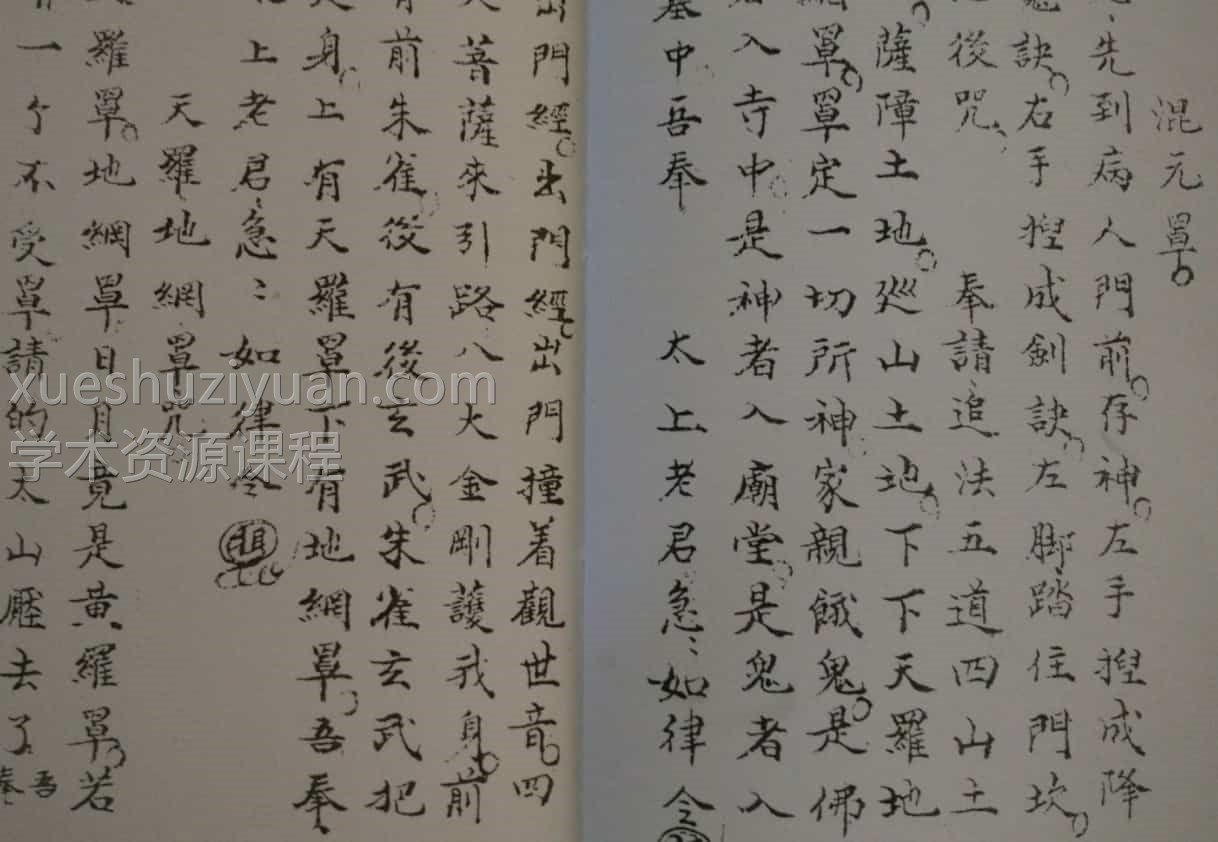 混元罩
先到病人門前存神左手揑成降
訣右手揑成劍訣左脚踏住門坎
後咒 奉請追法五道四山土
薩障土地廵山土土地下下下天羅地
網罩罩定一切所神家親餓鬼是佛
入寺中是神者入廟堂是鬼者入
墓中吾奉 太上老君急〻如律令
出門經出門經出門撞着觀世音四
大菩薩來引路八大金剛護我身前
有前朱雀後有後玄武朱雀玄武把
身上有天羅罩下有地網罩吾奉
上老君急〻如律令
天羅地網罩咒
羅罩地網罩日月竟是黄羅罩若
一个不受罩請的太山壓去了吾奉
xueshuziyuan.com
学术资源课程